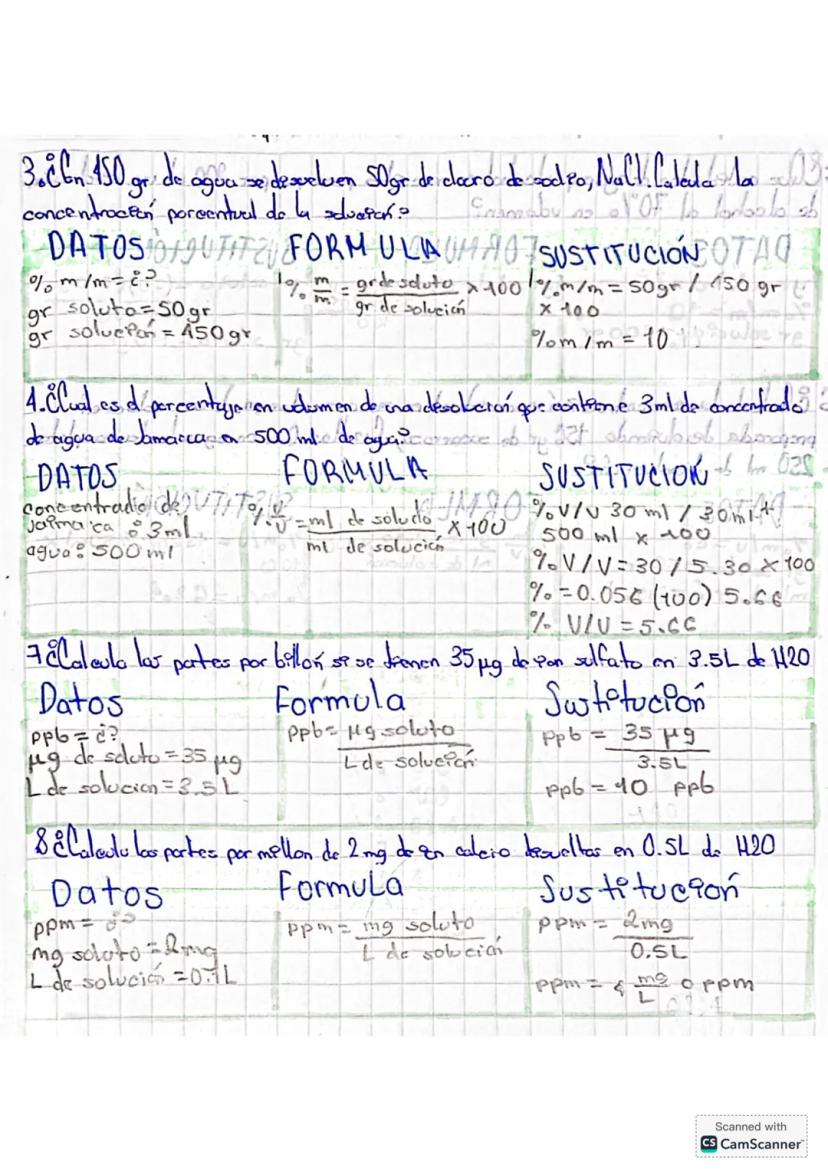 3.¿En 450 gr de agua se desuelven 50gr de cloró de sodio, NaCl. Calcula la
concentración porcentual de la solución?
DATOS FORMULA SUSTITUCIÓN
% m/m = ¿?
gr soluto = 50 gr
gr solución = 450 gr
% m/m = gr de soluto / gr de solución x 100
% m/m = 50gr / 450 gr
x 100
% m/m = 10
4.¿Cual es el porcentaje en volumen de una desolución que contiene 3ml de concentrado
de agua de Jamaica en 500 ml de agua?
DATOS FORMULA SUSTITUCION
concentradio de
Jaimaica: 3ml
agua: 500 ml
% v/v = ml de soludo / ml de solución x 100
% V/V 30 ml / 30ml +
500 ml x 100
% V/V = 30 / 5.30 x 100
% = 0.056 (100) 5.66
% V/V = 5.66
7 ¿Calcula las partes por billón si se tienen 35 µg de ion sulfato en 3.5L de H2O
Datos Formula Sustitución
ppb = ¿?
µg de soluto = 35 µg
L de solucion = 3.5 L
ppb = µg soluto
L de solución
ppb = 35 µg
3.5L
ppb = 10 ppb
8 ¿Calcula las partes por millon de 2 mg de ion calcio desueltos en 0.5L de H2O
Datos Formula Sustitución
ppm = ¿?
mg soluto = 2mg
L de solución =
ppm = mg soluto
L de solución
ppm = 2mg
0.5L
ppm = 4 mg/L o ppm
Scanned with
CS CamScanner